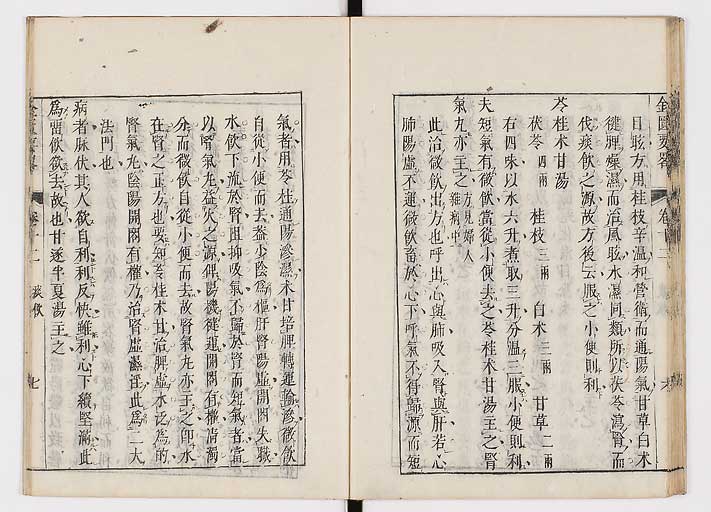 金匱要略 卷十二 痰飲
目眩方用桂枝辛溫和營衛而通陽氣甘草白朮
健脾燥濕而治風眩水濕同類所以茯苓瀉腎而
伐痰飲之源故方後云服之小便則利
苓桂朮甘湯
茯苓四兩 桂枝三兩 白朮三兩 甘草二兩
右四味以水六升煮取三升分溫三服小便則利
夫短氣有微飲當從小便去之苓桂朮甘湯主之腎
氣丸亦主之方見婦人雜病中
此治微飲出方也呼出心與肺吸入腎與肝若心
肺陽虛不運微飲畜於心下呼氣不得歸源而短
氣者用苓桂通陽滲濕朮甘培脾轉運輸滲微飲
自從小便而去益少陰為樞肝腎陽虛開闔失職
水飲下流於腎阻抑吸氣不歸於腎而短氣者當
以腎氣丸益火之源俾陽機健運開闔有權清濁
分而微飲自從小便而去故腎氣丸亦主之即水
在腎之正方也要知苓桂朮甘治脾虛水泛為的
腎氣丸陰陽開闔有權乃治腎虛濕淫此為二大
法門也
病者脉伏其人欲自利利反快雖利心下續堅滿此
為留飲欲去故也甘遂半夏湯主之
金匱要略 卷十二 痰飲 七